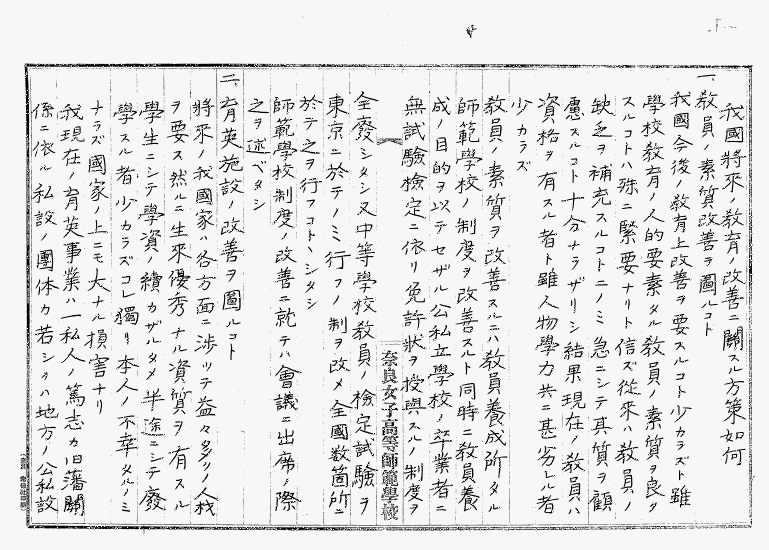 我國將來ノ教育ノ改善ニ關スル方策如何
一、教員ノ素質改善ヲ圖ルコト
我國今後ノ教育上改善ヲ要スルコト少カラズト雖
學校教育ノ人的要素タル教員ノ素質ヲ良クタ
スルコトハ殊ニ緊要ナリト信ズ從來ハ教員ノ
缺乏ヲ補充スルコトニノミ急ニシテ其質ヲ顧
慮スルコト十分ナラザリシ結果現在ノ教員ハ
資格ヲ有スル者ト雖人物學力共ニ甚劣レル者
少カラズ
教員ノ素質ヲ改善スルニハ教員養成所タル
師範學校ノ制度ヲ改善スルト同時ニ教員養
成ノ目的ヲ以テセザル公私立學校ノ卒業者ニ
無試驗檢定ニ依リ免許狀ヲ授與スルノ制度ヲ
奈良女子高等師範學校
全廢シタシ又中等學校教員ノ檢定試驗ヲ
東京ニ於テノミ行フノ制ヲ改メ全國數箇所ニ
於テ之ヲ行フコトヽシタシ
師範學校制度ノ改善ニ就テハ會議ニ出席ノ際
之ヲ述ベタシ
二、育英施設ノ改善ヲ圖ルコト
將來ノ我國家ハ各方面ニ涉ツテ益々多クノ人材
ヲ要ス然ルニ生來優秀ナル資質ヲ有スル
學生ニシテ學資ノ續カザルタメ半途ニシテ廢
學スル者少カラズコレ獨リ本人ノ不幸タルノミ
ナラズ國家ノ上ニモ大ナル損害ナリ
我現在ノ育英事業ハ一私人ノ篤志カ旧藩關
係ニ依ル私設ノ團体カ若シクハ地方ノ公私設